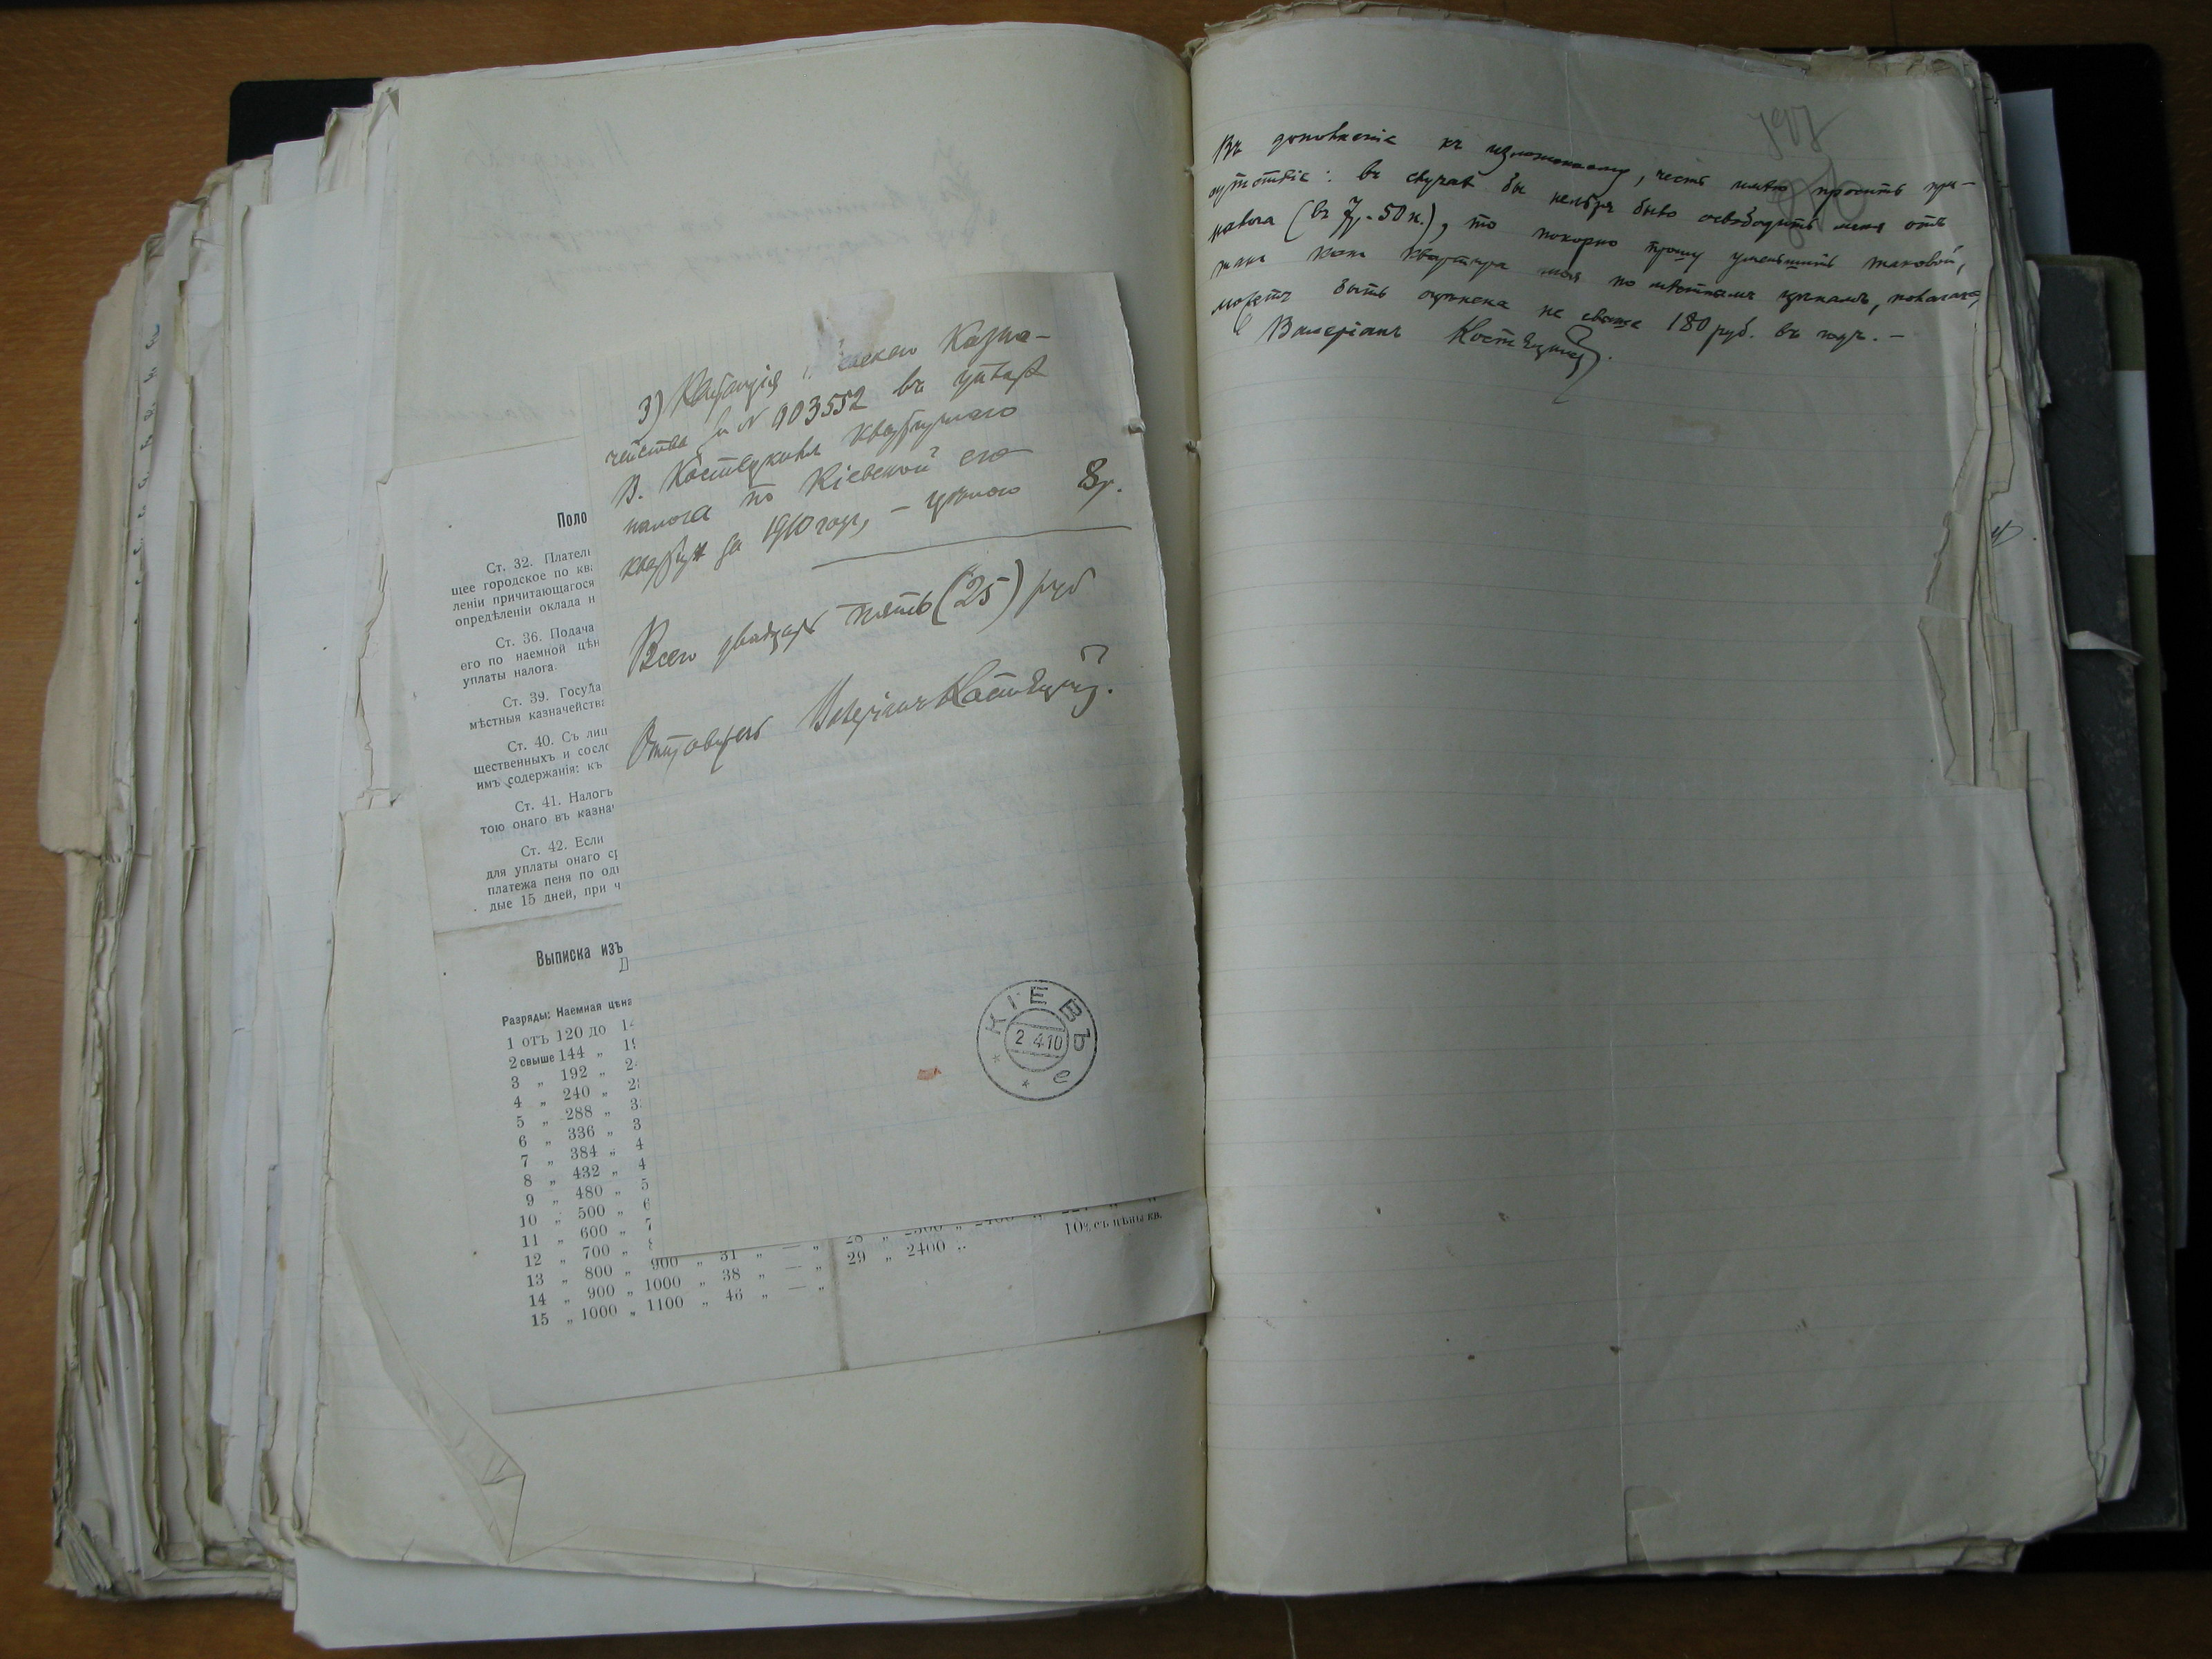 3) Квитанція Казна-
чейства за № 903552 въ уплатѣ
В. Костецкимъ квартирнаго
налога по Кіевской его
квартирѣ за 1910 годъ, – цѣною 8 р.
Всего двадцать пять (25) руб
Валеріанъ Костецкій.
КІЕВЪ
2 4 10
е
Поло
Ст. 32. Плател
щее городское по ква
леніи причитающагося
опредѣленіи оклада н
Ст. 36. Подача
его по наемной цѣн
уплаты налога.
Ст. 39. Госуда
мѣстныя казначейства
Ст. 40. Съ лиц
щественныхъ и сосло
имъ содержанія: къ
Ст. 41. Налогъ
тою онаго въ казнач
Ст. 42. Если
для уплаты онаго ср
платежа пеня по одн
дые 15 дней, при ч
Выписка изъ
Разряды: Наемная цѣна
1 отъ 120 до 14
2 свыше 144 „ 19
3 „ 192 „ 24
4 „ 240 „ 28
5 „ 288 „ 33
6 „ 336 „ 3
7 „ 384 „ 4
8 „ 432 „ 4
9 „ 480 „ 5
10 „ 500 „ 6
11 „ 600 „ 7
12 „ 700 „ 8
13 „ 800 „ 900 „ 31 „ — „
14 „ 900 „ 1000 „ 38 „ — „
15 „ 1000 „ 1100 „ 46 „ — „
28 „ 2300 „ 2400 „
29 „ 2400 „ 10% съ цѣны кв.
Въ дополненіе къ изложенному, честь имѣю просить при-
сутствіе: въ случаѣ бы нельзя было освободить меня отъ
налога (въ 7 р. 50 к.), то покорно прошу уменьшить таковой,
такъ какъ квартира моя по мѣстнымъ цѣнамъ, полагаю,
можетъ быть оцѣнена не свыше 180 руб. въ годъ. –
Валеріанъ Костецкій.